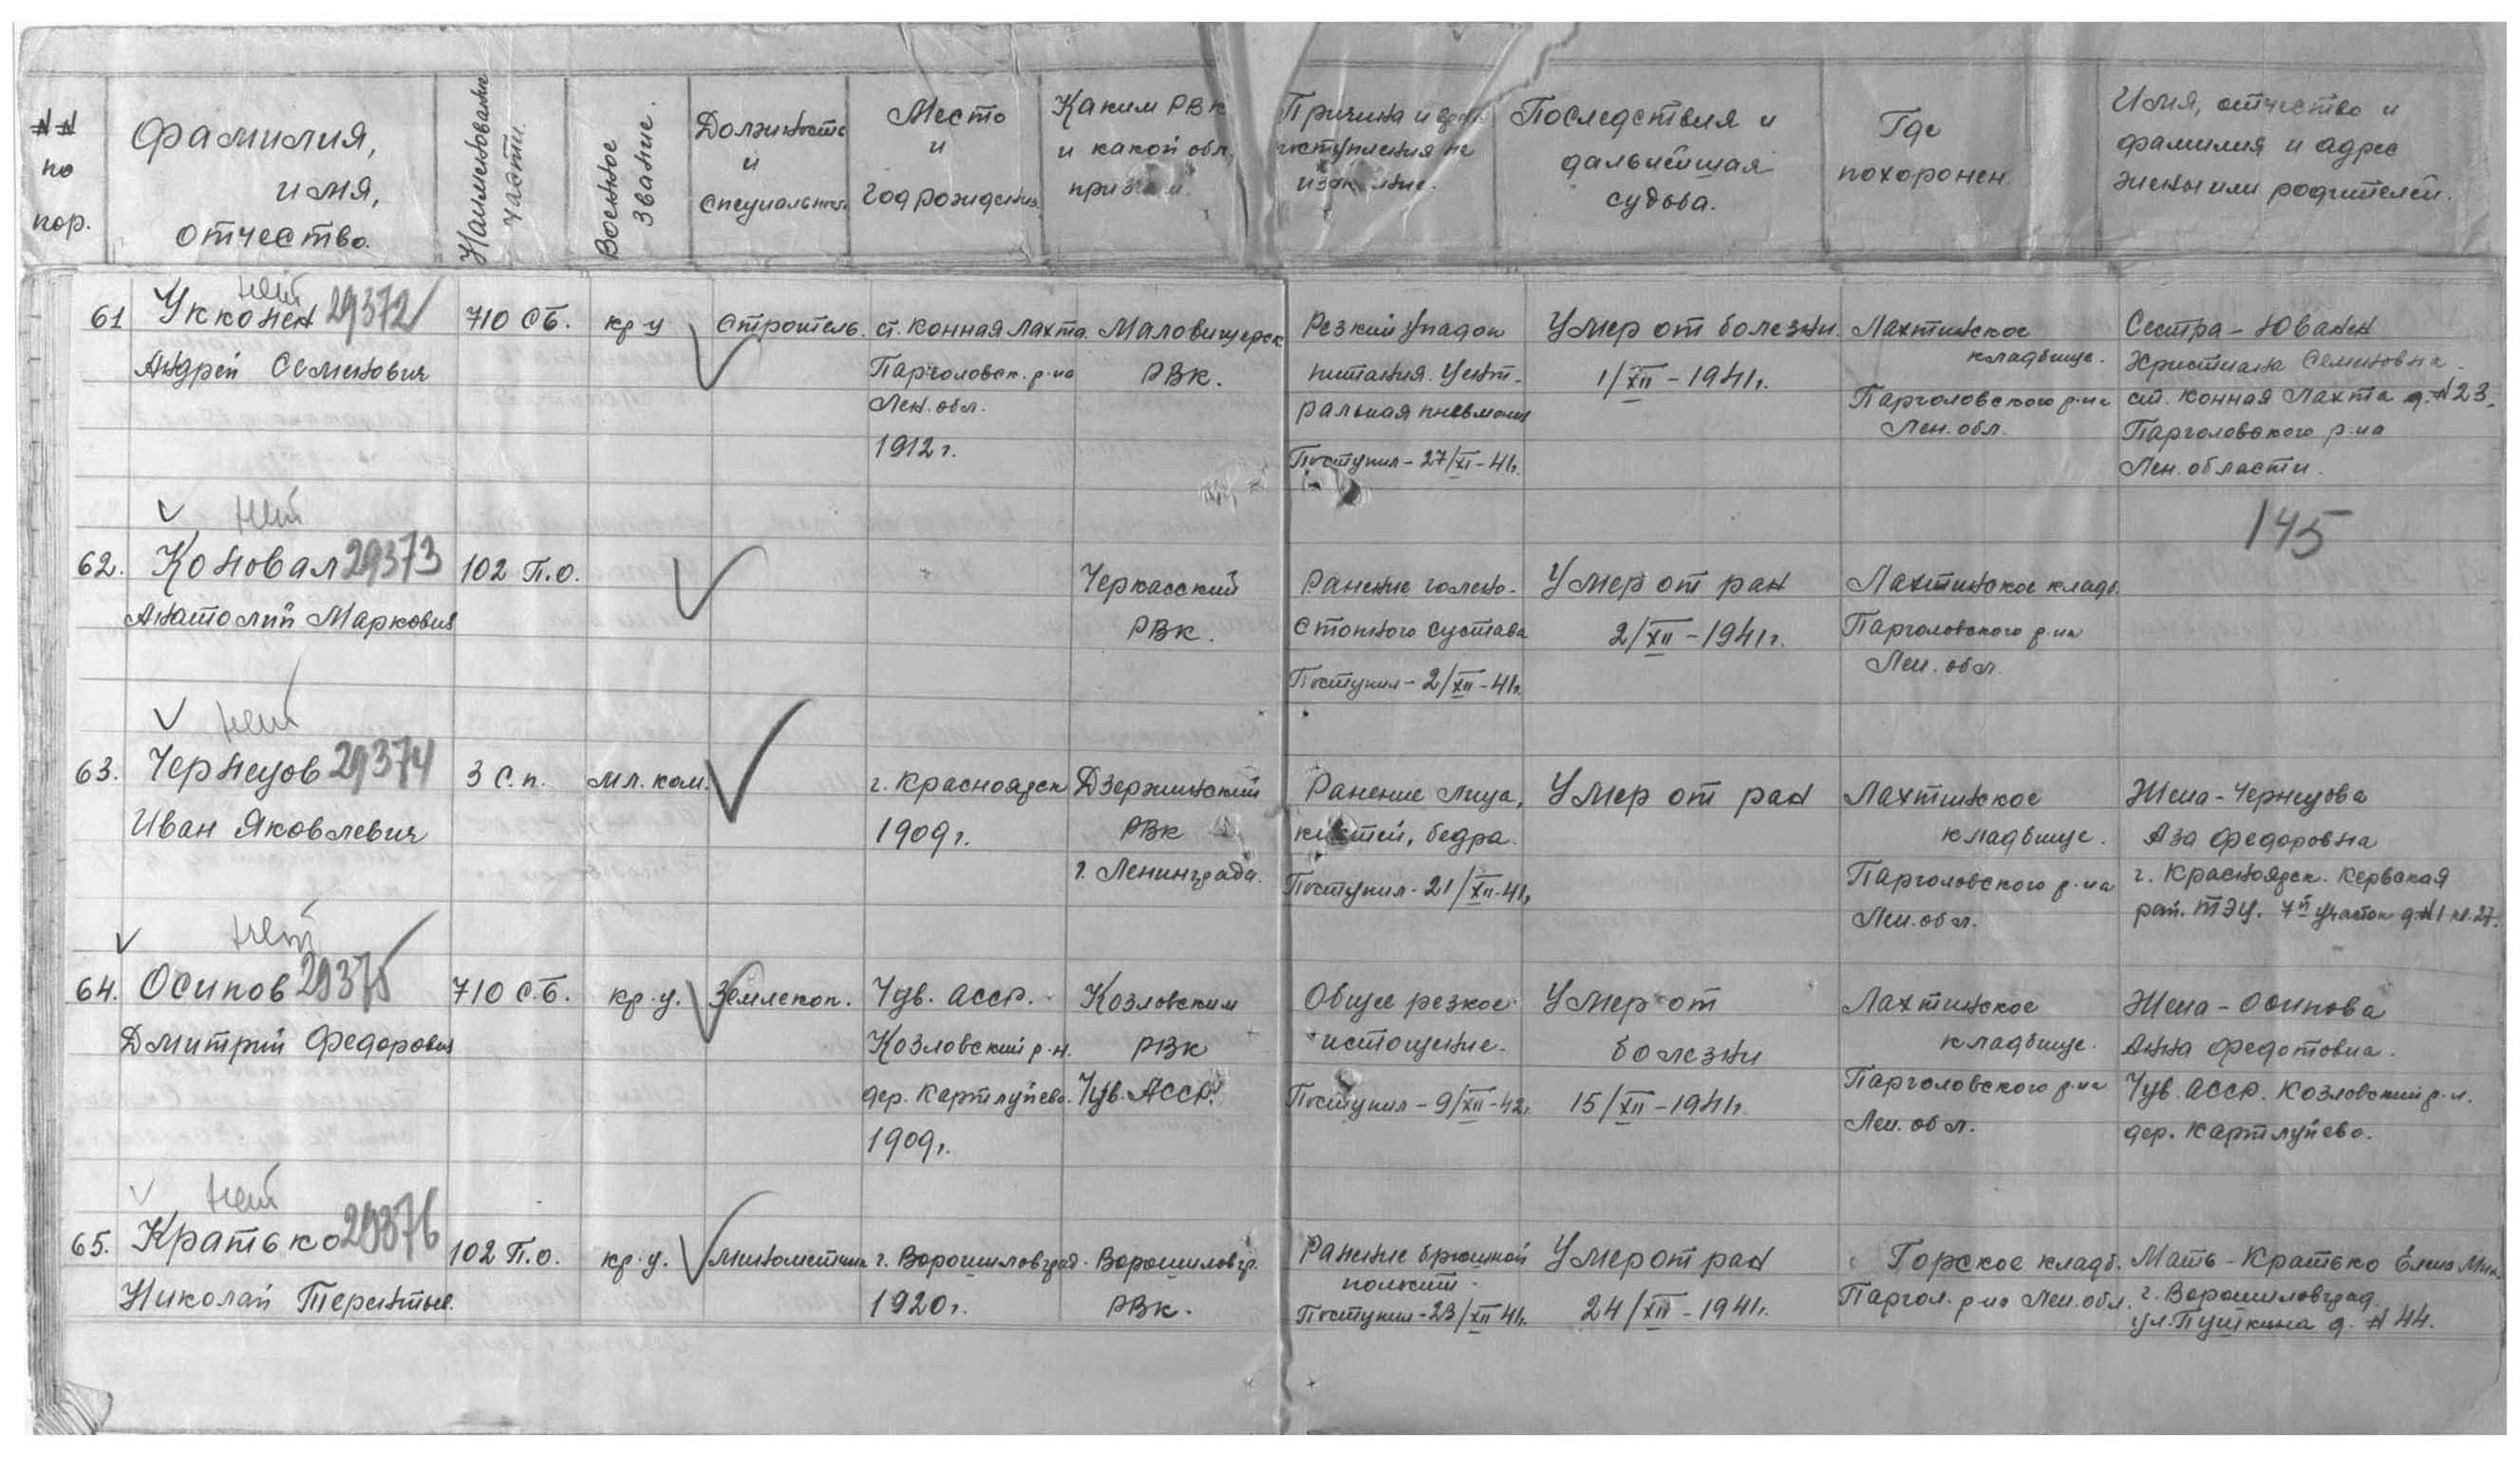 №№ по пор.
Фамилия, имя, отчество.
Наименование части.
Военное звание.
Должность и специальность
Место и год рождения
Каким РВК и какой обл.
Причина и
Последствия и дальнейшая судьба.
Где похоронен
Имя, отчество и фамилия и адрес жены или родителей.
нет
61 Укконен 29372 710 Сб. кр-ц Строитель. ст. Конная Лахта. Маловишерск Резкий упадок Умер от болезни. Лахтинское Сестра - Юванен
Андрей Семенович Парголовск. р-на РВК. питания. Цент- 1/XII - 1941г. кладбище. Христина Семеновна
Лен. обл. ральная пневмония Парголовского р-на ст. Конная Лахта д. №23.
1912 г. Поступил - 27/XI - 41г. Лен. обл. Парголовского р-на
Лен. области.
нет 145
62. Коновал 29373 102 П.О. Черкасский Ранение голено- Умер от ран Лахтинское кладб.
Анатолий Маркович РВК. стопного сустава 2/XII - 1941г. Парголовского р-на
Поступил - 2/XII - 41г. Лен. обл.
нет
63. Чернецов 29374 3 С.п. мл. ком. г. Красноярск Дзержинский Ранение лица, Умер от ран Лахтинское Жена - Чернецова
Иван Яковлевич 1909г. РВК кистей, бедра. кладбище. Аза Федоровна
г. Ленинграда. Поступил - 21/XII - 41г. Парголовского р-на г. Красноярск.
Лен. обл. 7й участок д. №1 кв. 27.
нет
64. Осипов 29375 710 С.б. кр-ц. Землекоп. Чув. АССР. Козловским Общее резкое Умер от Лахтинское Жена - Осипова
Дмитрий Федорович Козловский р-н. РВК истощение. болезни кладбище. Анна Федотовна.
дер. Картлуево. Чув. АССР. Поступил - 9/XII - 42г. 15/XII - 1941г. Парголовского р-на Чув. АССР. Козловский р-н.
1909г. Лен. обл. дер. Картлуево.
нет
65. Кратько 29376 102 П.О. кр-ц. Минометчик г. Ворошиловград. Ворошиловгр. Ранение брюшной Умер от ран Горское кладб. Мать - Кратько Елена
Николай Терентьев. 1920г. РВК. полости Паргол. р-на Лен. обл. г. Ворошиловград
Поступил - 23/XII 41г. 24/XII - 1941г. ул. Пушкина д. №44.